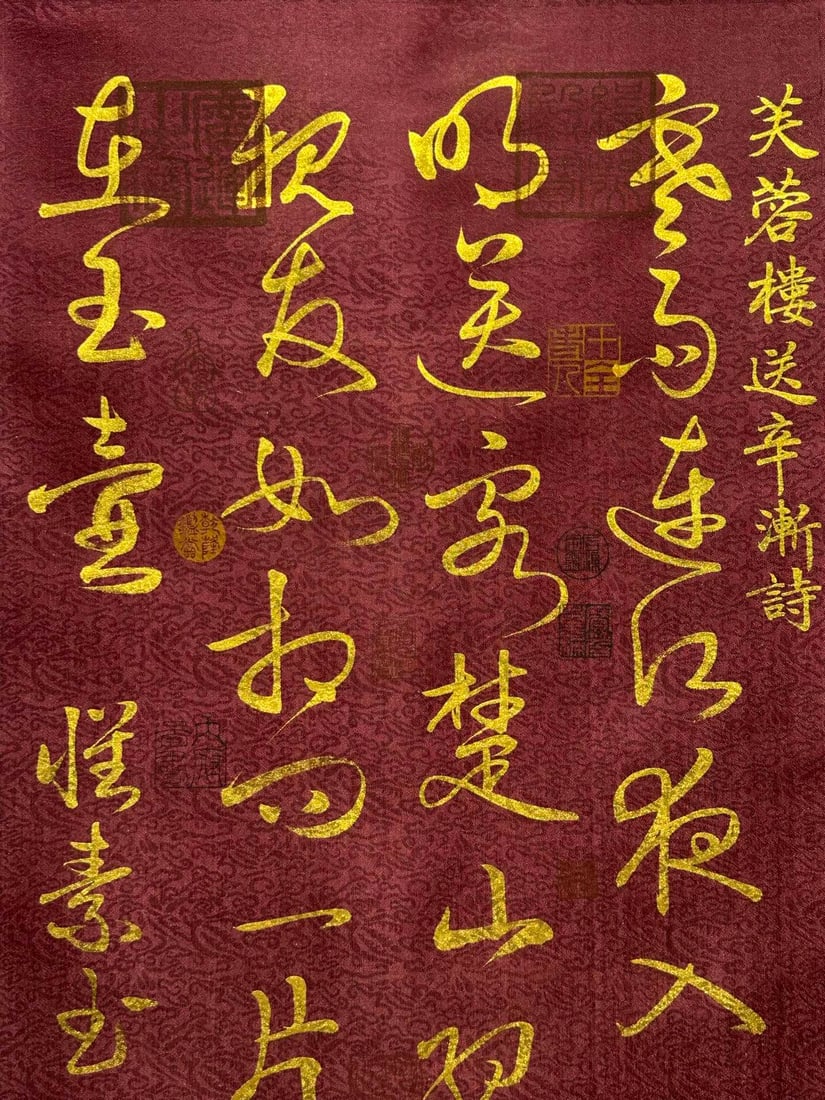 芙蓉樓送辛漸詩
寒雨連江夜入
明送客楚山孤
親友如相問一片
在玉壺
懷素書